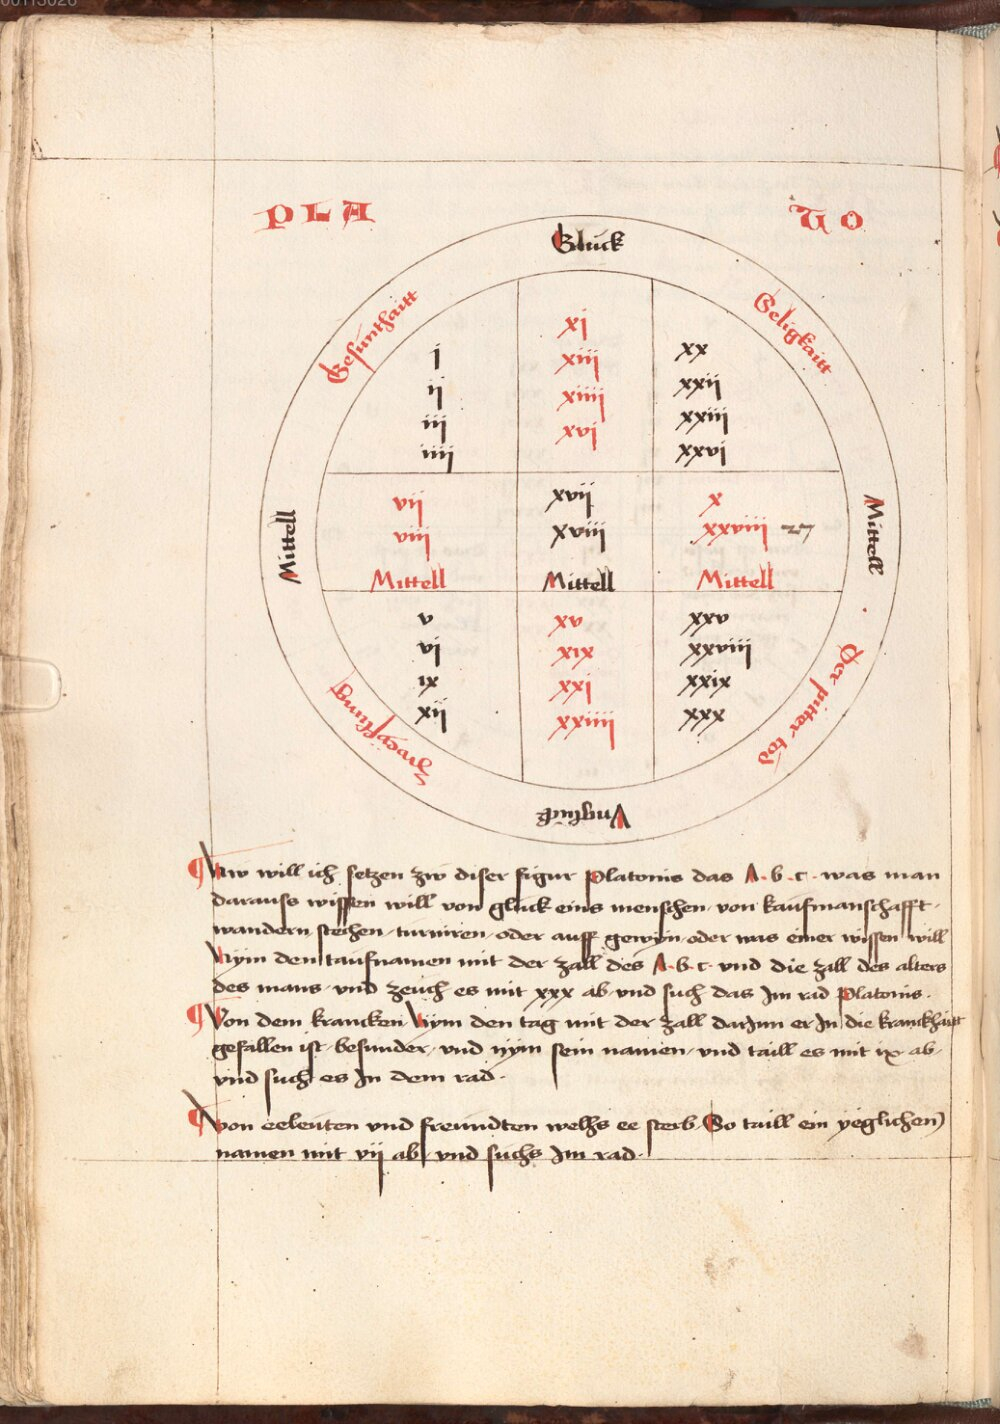 PLA TO
Gluck
Gesunthaitt
Seligkaitt
j xj xx
ij xiij xxij
iij xiiij xxiij
iiij xvj xxvj
vij xvij x
viij xviij xxviij 27
Mittell Mittell Mittell
Mittell Mittell
v xv xxv
vj xix xxviij
ix xxj xxix
xij xxiiij xxx
Der pitter tod
Vngluck
Nw will ich setzen zw diser figur Platonis das A·b·c· was man
darauss wissen will von gluck eins menschen· von kaufmanschafft·
wandern stechen· turniren· oder auff gewyn· oder was einer wissen will
Nym den taufnamen mit der zall des A·b·c· vnd die zall des alters
des mans· vnd zeuch es mit xxx ab· vnd such das Jm rad Platonis·
Von dem krancken Nym den tag mit der zall darJnn er Jn die kranckhait
gefallen ist· besunder· vnd nym sein namen· vnd taill es mit ix· ab·
vnd such es Jn dem rad·
Von eeleuten vnd freundten welhs ee sterb So taill ein yeglichen
namen mit vij ab· vnd suchs Jm rad·